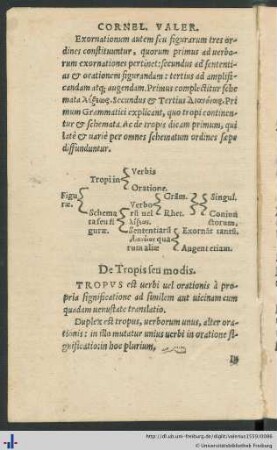 CORNEL. VALER.
Exornationum autem seu figurarum tres or-
dines constituuntur, quorum primus ad verbo-
rum exornationes pertinet: secundus ad sententi-
as & orationem figurandam: tertius ad amplifi-
candam atq; augendam. Primus complectitur sche
mata Λέξεως. Secundus & Tertius Διανοίας. Pri
mum Grammatici explicant, quo tropi continen-
tur & schemata. Ac de tropis dicam primum, qui
latè & uariè per omnes schematum ordines sæpe
diffunduntur.
Verbis
Tropi in
Oratione.
Grãm. Singul.
Figu Verbo
ræ. Schema rũ uel Rhet. Coniũct
ta seu fi λέξεως. ctorum.
guræ. Sententiarũ Exornãt tantũ.
διανοίας qua
rum aliæ Augent etiam.
De Tropis seu modis.
TROPVS est uerbi uel orationis à pro
pria significatione ad similem aut uicinam cum
quadam uenustate translatio.
Duplex est tropus, uerborum unus, alter ora-
tionis: in illo mutatur unius uerbi in oratione si
gnificatio: in hoc plurium,
http://dl.ub.uni-freiburg.de/diglit/valerius1570/0006
© Universitätsbibliothek Freiburg